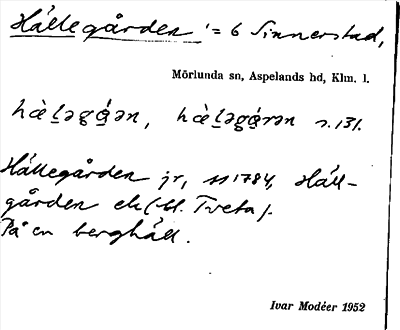 Hällegården = 6 Sinnerstad,
Mörlunda sn, Aspelands hd, Klm. l.
hæ̀ḷəgá̤ən, hæ̀ḷəgá̤rən s. 131.
Hällegården jr, 1784, Häll-
gården ek (bl. Tveta).
På en berghäll.
Ivar Modéer 1952